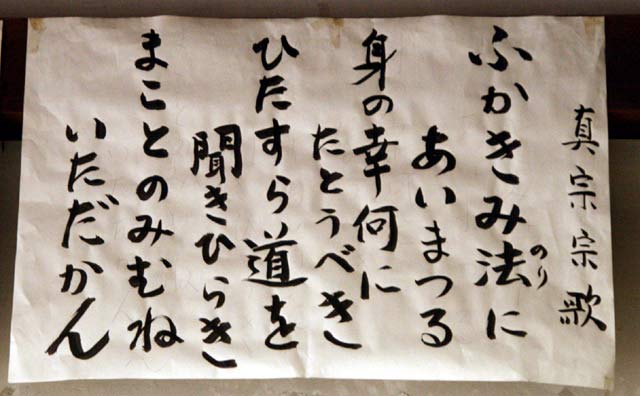 真宗宗歌
ふかきみ法に
のり
あいまつる
身の幸何に
たとうべき
ひたすら道を
聞きひらき
まことのみむね
いただかん